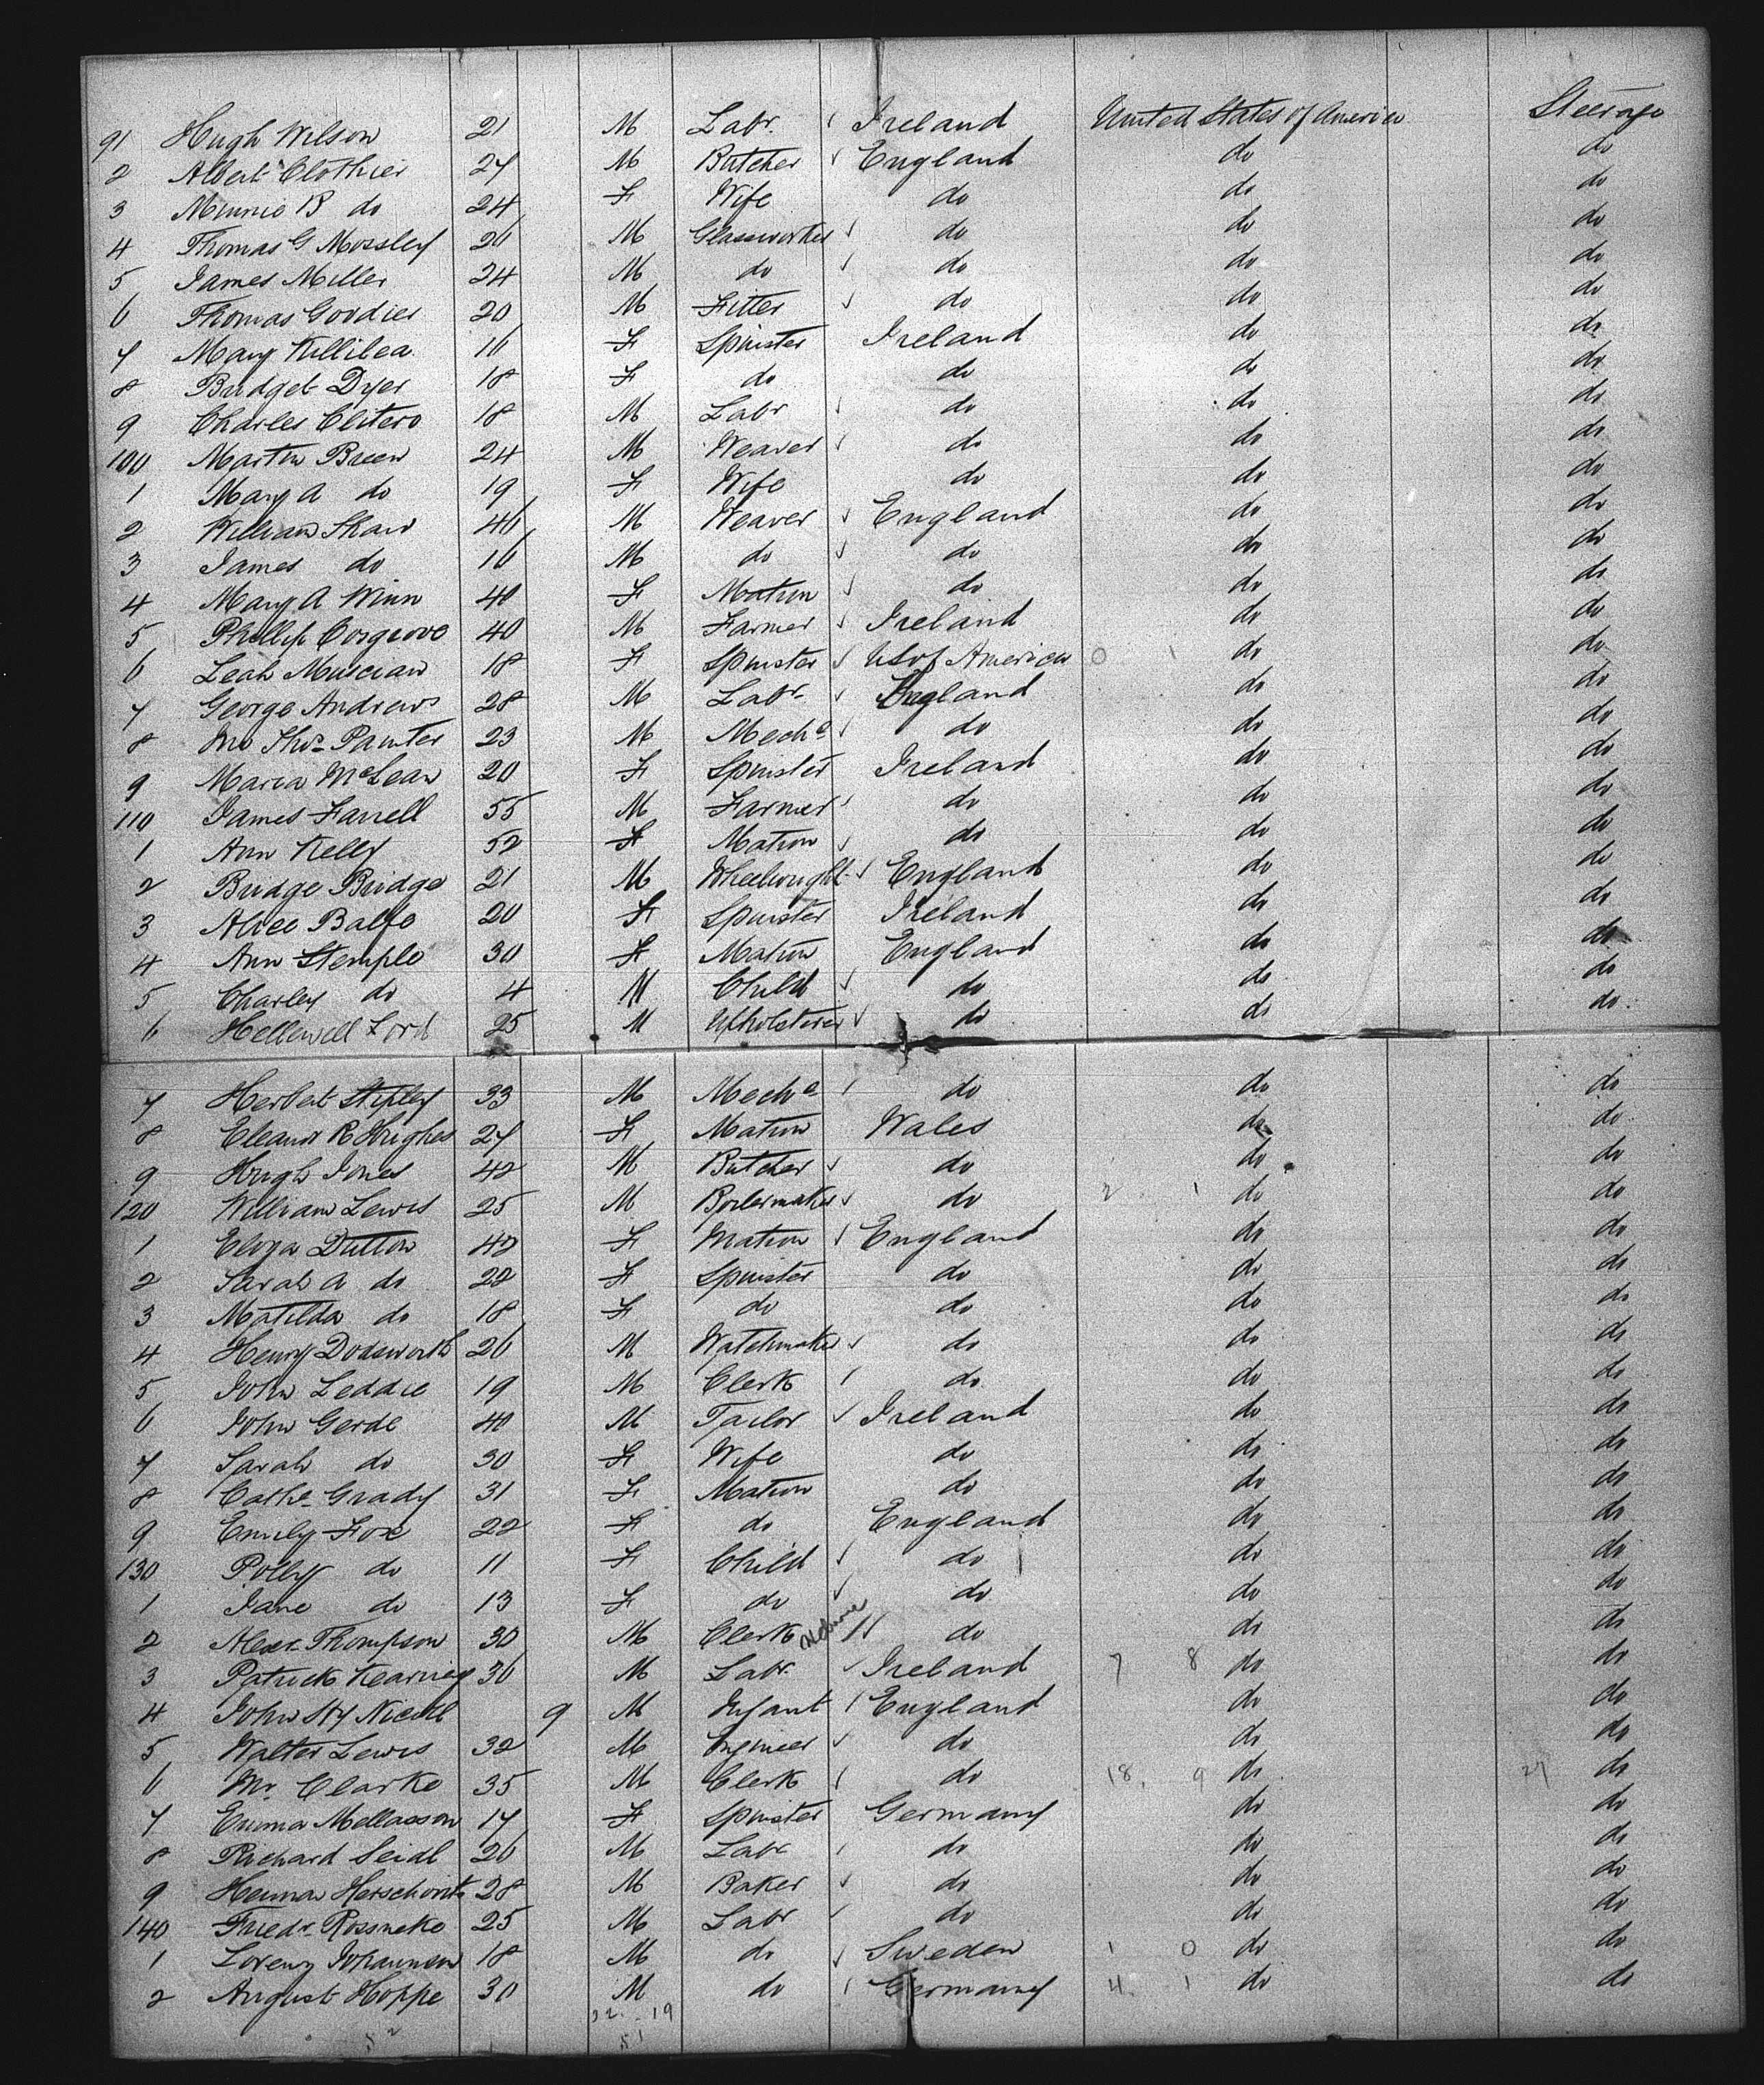 91 Hugh Wilson 21 M Labr. Ireland United States of America Steerage
2 Albert Clothier 27 M Butcher England do do
3 Minnie B do 24 F Wife do do do
4 Thomas G Mossley 26 M Glassworker do do do
5 James Miller 24 M do do do do
6 Thomas Goodier 20 M Fitter do do do
7 Mary Killilea 16 F Spinster Ireland do do
8 Bridget Dyer 18 F do do do do
9 Charles Clitero 18 M Labr do do do
100 Martin Breen 24 M Weaver do do do
1 Mary A do 19 F Wife do do do
2 William Shaw 46 M Weaver England do do
3 James do 16 M do do do do
4 Mary A Winn 40 F Matron do do do
5 Phillip Cosgrove 40 M Farmer Ireland do do
6 Leah 18 F Spinster US of America 0 1 do do
7 George Andrews 28 M Labr England do do
8 Thos Painter 23 M Mech do do do
9 Maria McLean 20 F Spinster Ireland do do
110 James Farrell 55 M Farmer do do do
1 Ann Kelly 52 F Matron do do do
2 Bridge Bridge 21 M Wheelwright England do do
3 Alice Balfe 20 F Spinster Ireland do do
4 Ann Stemple 30 F Matron England do do
5 Charley do 4 M Child do do do
6 Hellewell Lord 25 M Upholsterer do do do
7 Herbert 33 M Mech do do do
8 Eleanor R Hughes 27 F Matron Wales do do
9 Hugh Jones 42 M Butcher do do do
120 William Lewis 25 M Boilermaker do 2 1 do do
1 Eliza Dutton 42 F Matron England do do
2 Sarah A do 22 F Spinster do do do
3 Matilda do 18 F do do do do
4 Henry Dodsworth 26 M Watchmaker do do do
5 John Leddie 19 M Clerk do do do
6 John Gerde 40 M Tailor Ireland do do
7 Sarah do 30 F Wife do do do
8 Cathe Grady 31 F Matron do do do
9 Emily Fox 22 F do England do do
130 Polly do 11 F Child do do do
1 Jane do 13 F do do do do
2 Alexr Thompson 30 M Clerk do do do
3 Patrick Kearney 36 M Labr Ireland 7 8 do do
4 John Hy Nicoll 9 M Infant England do do
5 Walter Lewis 32 M Engineer do do do
6 Mr. Clarke 35 M Clerk do 18 9 do 27 do
7 Emma Mellasson 17 F Spinster Germany do do
8 Richard Seidl 26 M Labr do do do
9 Herschovitz 28 M Baker do do do
140 Friedr Rossneke 25 M Labr do do do
1 Lorenz Johannsen 18 M do Sweden 1 0 do do
2 August Hoppe 30 M do Germany 4 1 do do
32 19
51